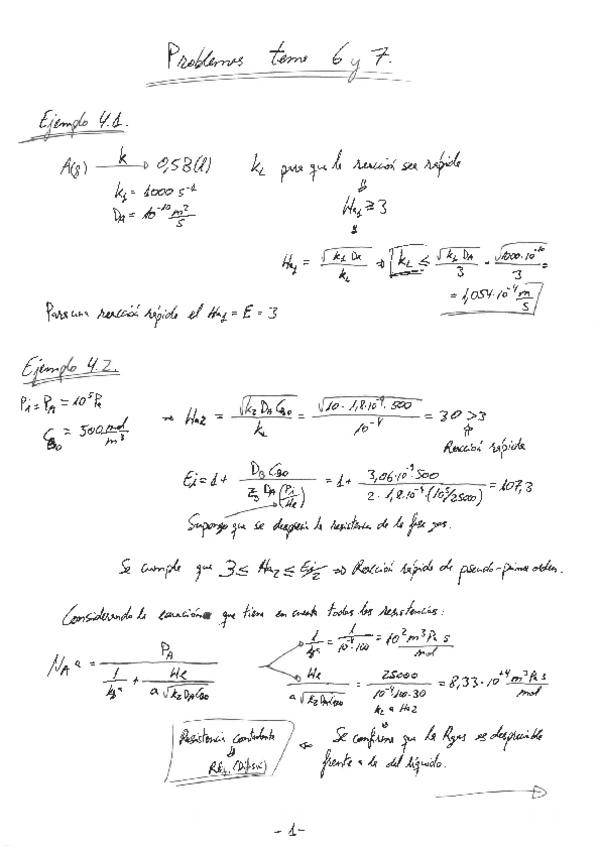 Problemas tema 6 y 7.
Ejemplo 4.1.
A(g) —k→ 0,5B(l)    kL para que la reacción sea rápida
k1 = 1000 s⁻¹    ⇓
DA = 10⁻¹⁰ m²/s    Ha1 ≥ 3
⇓
Ha1 = √(k1 DA)/kL ⇒ kL ≤ √(k1 DA)/3 = √(1000·10⁻¹⁰)/3 =
= 1,054·10⁻⁴ m/s
Para una reacción rápida el Ha1 = E = 3
Ejemplo 4.2.
Pi = PA = 10⁵ Pa
CB0 = 500 mol/m³
→ Ha2 = √(k2 DA CB0)/kL = √(10·1,8·10⁻⁹·500)/10⁻⁴ = 30 > 3
⇑
Reacción rápida
Ei = 1 + DB CB0/(z/B DA (Pi/He)) = 1 + 3,06·10⁻⁹·500/(2·1,8·10⁻⁹(10⁵/25000)) = 107,3
Supongo que se desprecia la resistencia de la fase gas.
Se cumple que 3 ≤ Ha2 ≤ Ei/2 ⇒ Reacción rápida de pseudo-primer orden.
Considerando la ecuación que tiene en cuenta todas las resistencias:
NA a = PA/(1/(kg a) + He/(a√(k2 DA CB0)))
1/(kg a) = 1/(10⁻⁴·100) = 10² m³ Pa s/mol
He/(a√(k2 DA CB0)) = 25000/(10⁻⁴·100·30) = 8,33·10⁴ m³ Pa s/mol
kL a Ha2
Resistencia controlante
⇓
RQL (Difusió)
⇐ Se confirma que la Rgas es despreciable
frente a la del líquido.
-1-